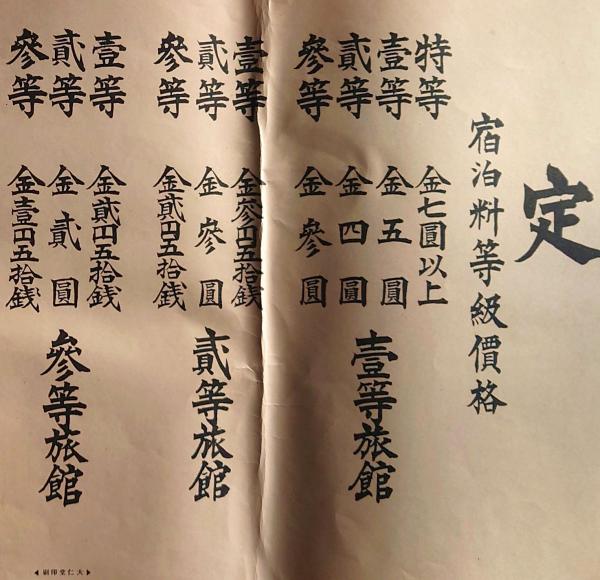 定
宿泊料等級價格
特等 金七圓以上
壹等 金五圓
貳等 金四圓
參等 金參圓
壹等旅館
壹等 金參円五拾錢
貳等 金參圓
參等 金貳円五拾錢
貳等旅館
壹等 金貳円五拾錢
貳等 金貳圓
參等 金壹円五拾錢
參等旅館
◀刷印堂仁大▶